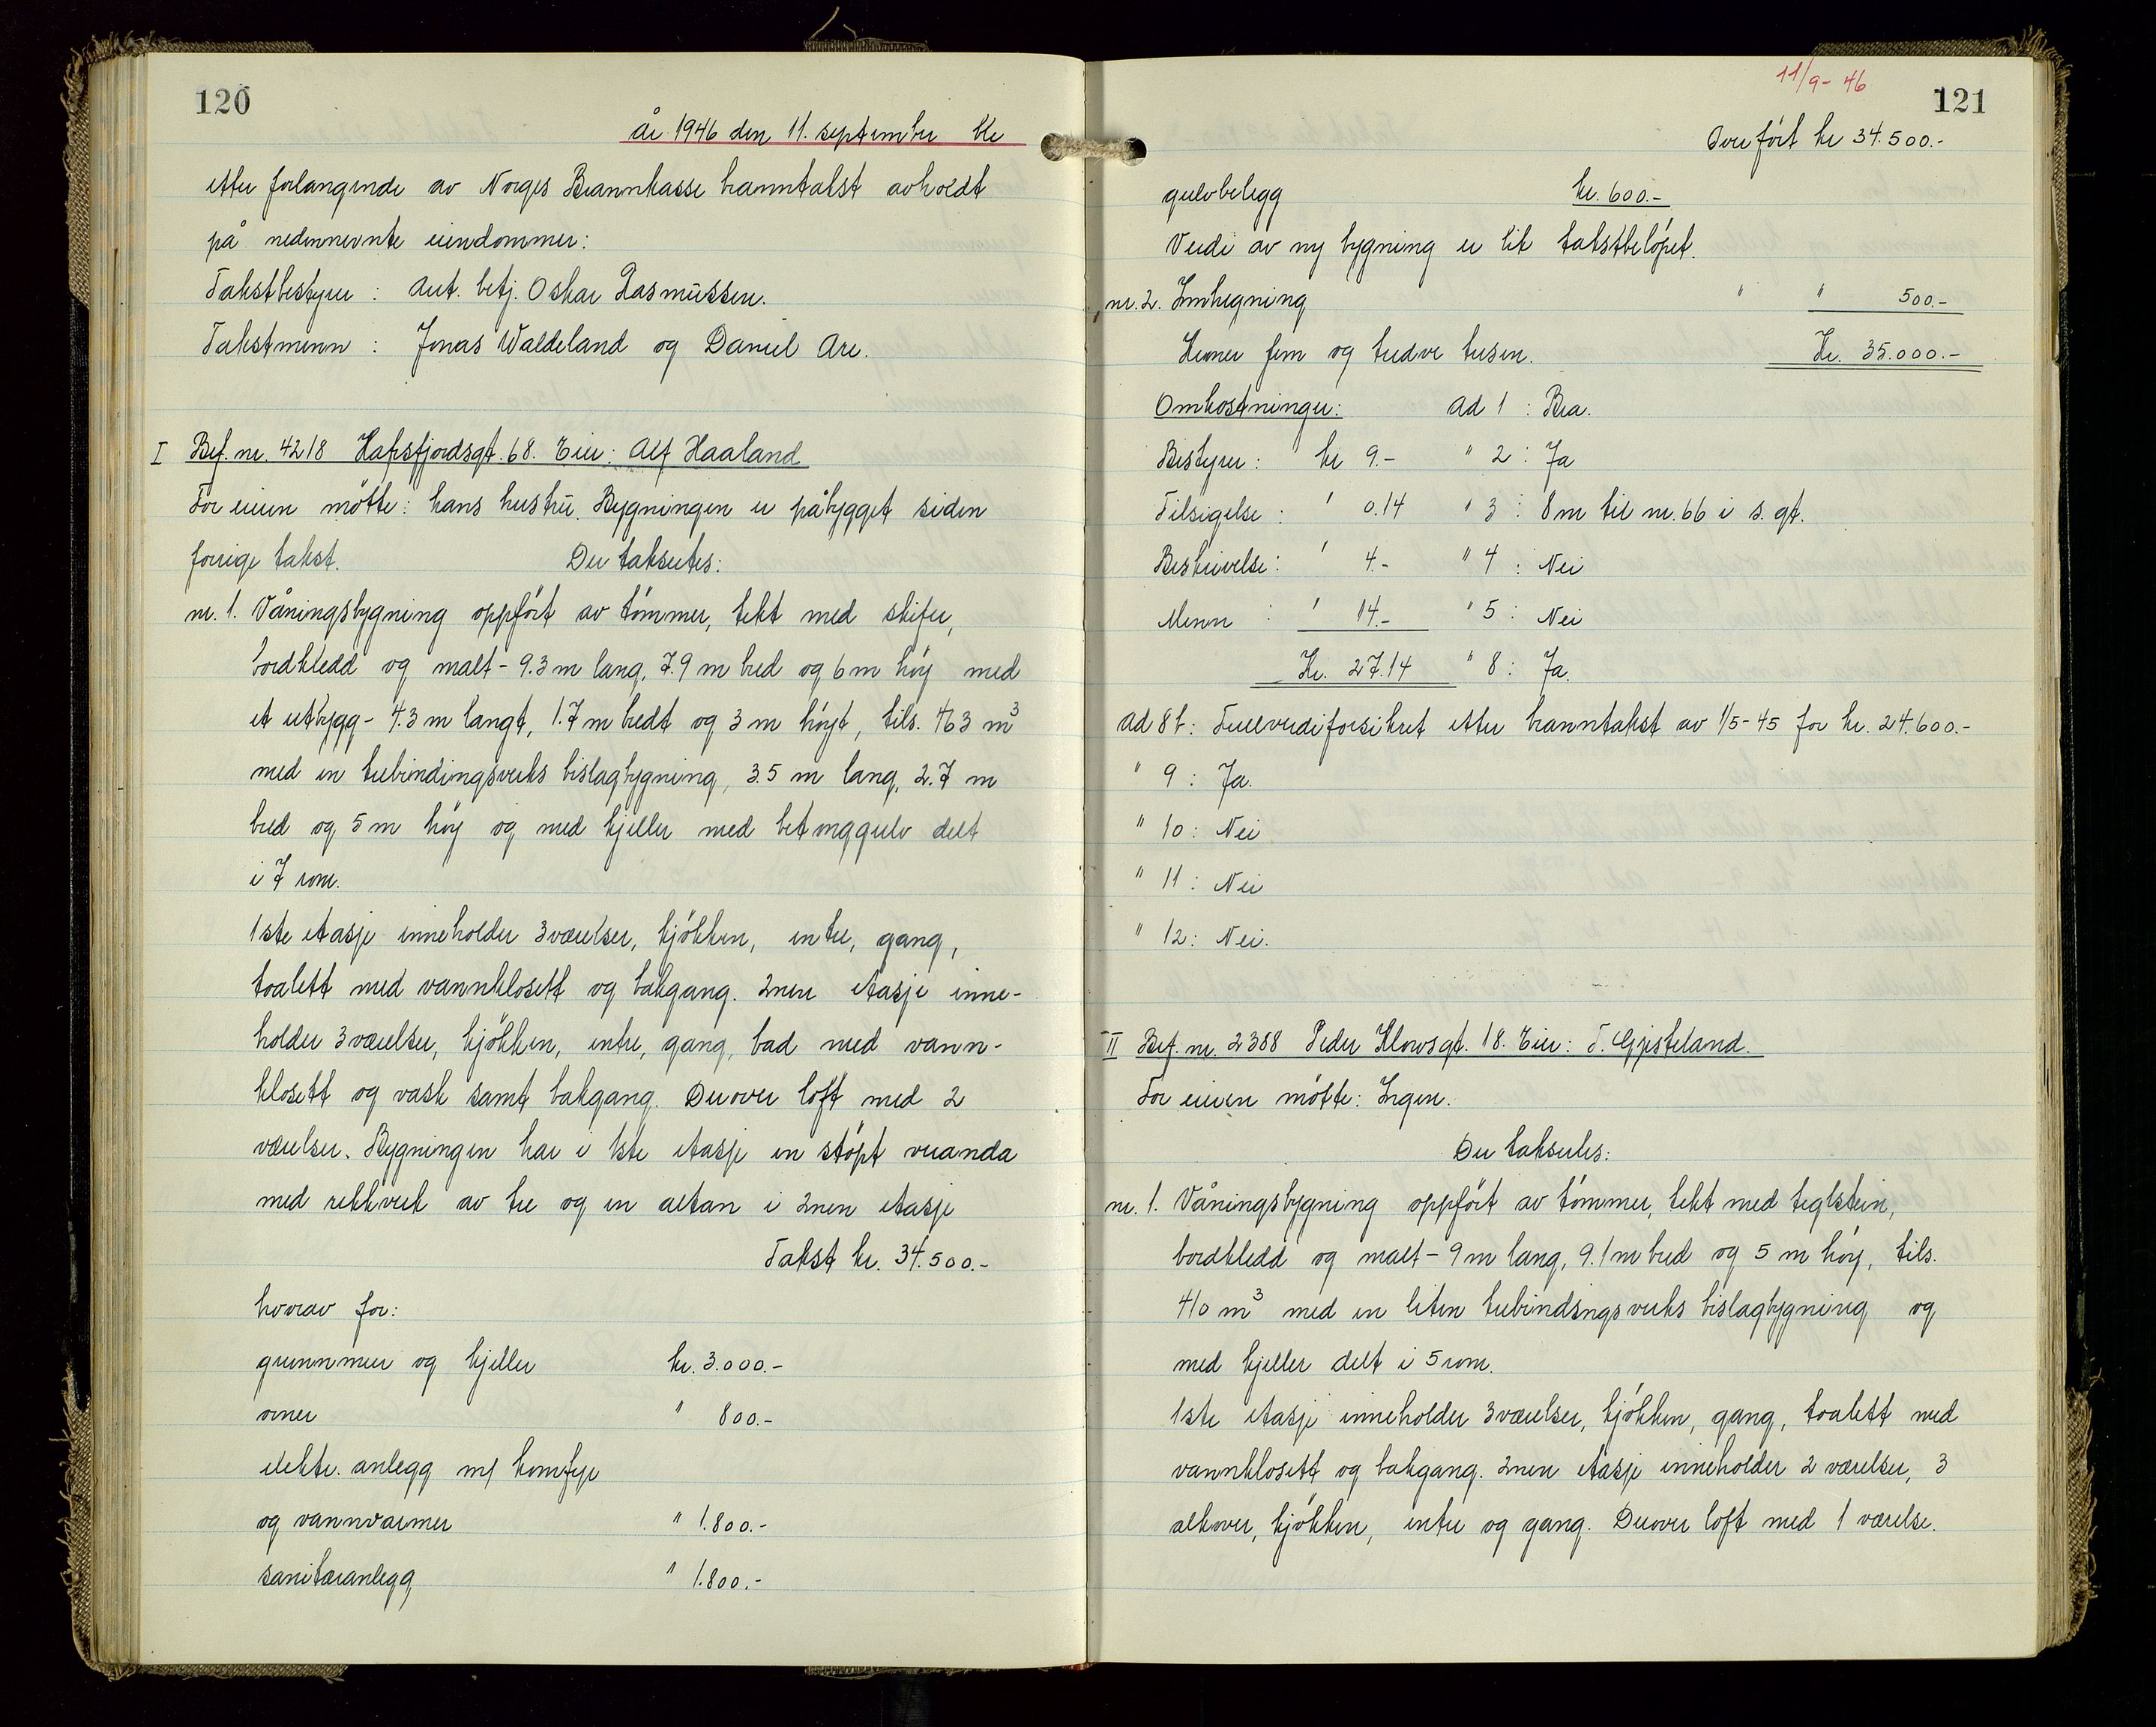 120
År 1946 den 11. september ble
etter forlangende av Norges Brannkasse branntakst avholdt
på nedennevnte eiendommer:
Takstbestyrer : Aut. betj. Oskar Rasmussen.
Takstmenn : Jonas Waldeland og Daniel Are.
I Bef. nr. 4218 Hafrsfjordsgt. 68. Eier: Alf Haaland
For eieren møtte: hans hustru. Bygningen er påbygget siden
forrige takst. Der takseres:
nr. 1. Våningsbygning oppført av tømmer, tekt med skifer,
bordkledd og malt - 9.3 m lang, 7.9 m bred og 6 m høy med
et utbygg - 4.3 m langt, 1.7 m bredt og 3 m høyt, tils. 463 m³
med en trebindingsverks bislagbygning, 3.5 m lang, 2.7 m
bred og 5 m høy og med kjeller med betonggulv delt
i 7 rom.
1ste etasje inneholder 3 værelser, kjøkken, entre, gang,
toalett med vannklosett og bakgang. 2nen etasje inne-
holder 3 værelser, kjøkken, entre, gang, bad med vann-
klosett og vask samt bakgang. Derover loft med 2
værelser. Bygningen har i 1ste etasje en støpt veranda
med rekkverk av tre og en altan i 2nen etasje
Takst kr. 34.500.-
hvorav for:
grunnmur og kjeller kr. 3.000.-
ovner " 800.-
elektr. anlegg m/ komfyr
og vannvarmer " 1.800.-
sanitæranlegg " 1.800.-
11/9- 46
121
Overført kr 34.500.-
gulvbelegg kr. 600.-
Verdi av ny bygning er lik takstbeløpet.
nr. 2. Innhegning " " 500.-
Kroner fem og tredve tusen. Kr. 35.000.-
Omkostninger: ad 1 : Bra.
Bestyrer : kr 9.- " 2 : Ja
Tilsigelse : " 0.14 " 3 : 8 m til nr. 66 i s. gt.
Beskrivelse : " 4.- " 4 : Nei
Menn : " 14.- " 5 : Nei
Kr. 27.14 " 8 : Ja.
ad 8 b : Fullverdiforsikret etter branntakst av 1/5-45 for kr. 24.600.-
" 9 : Ja.
" 10 : Nei
" 11 : Nei
" 12 : Nei.
II Bef. nr. 2388 Peder Klowsgt. 18. Eier: T. Gjesteland.
For eieren møtte: Ingen.
Der takseres:
nr. 1. Våningsbygning oppført av tømmer, tekt med teglstein,
bordkledd og malt - 9 m lang, 9.1 m bred og 5 m høy, tils.
410 m³ med en liten trebindsngsverks bislagbygning og
med kjeller delt i 5 rom.
1ste etasje inneholder 3 værelser, kjøkken, gang, toalett med
vannklosett og bakgang. 2nen etasje inneholder 2 værelser, 3
alkover, kjøkken, entre og gang. Derover loft med 1 værelse.